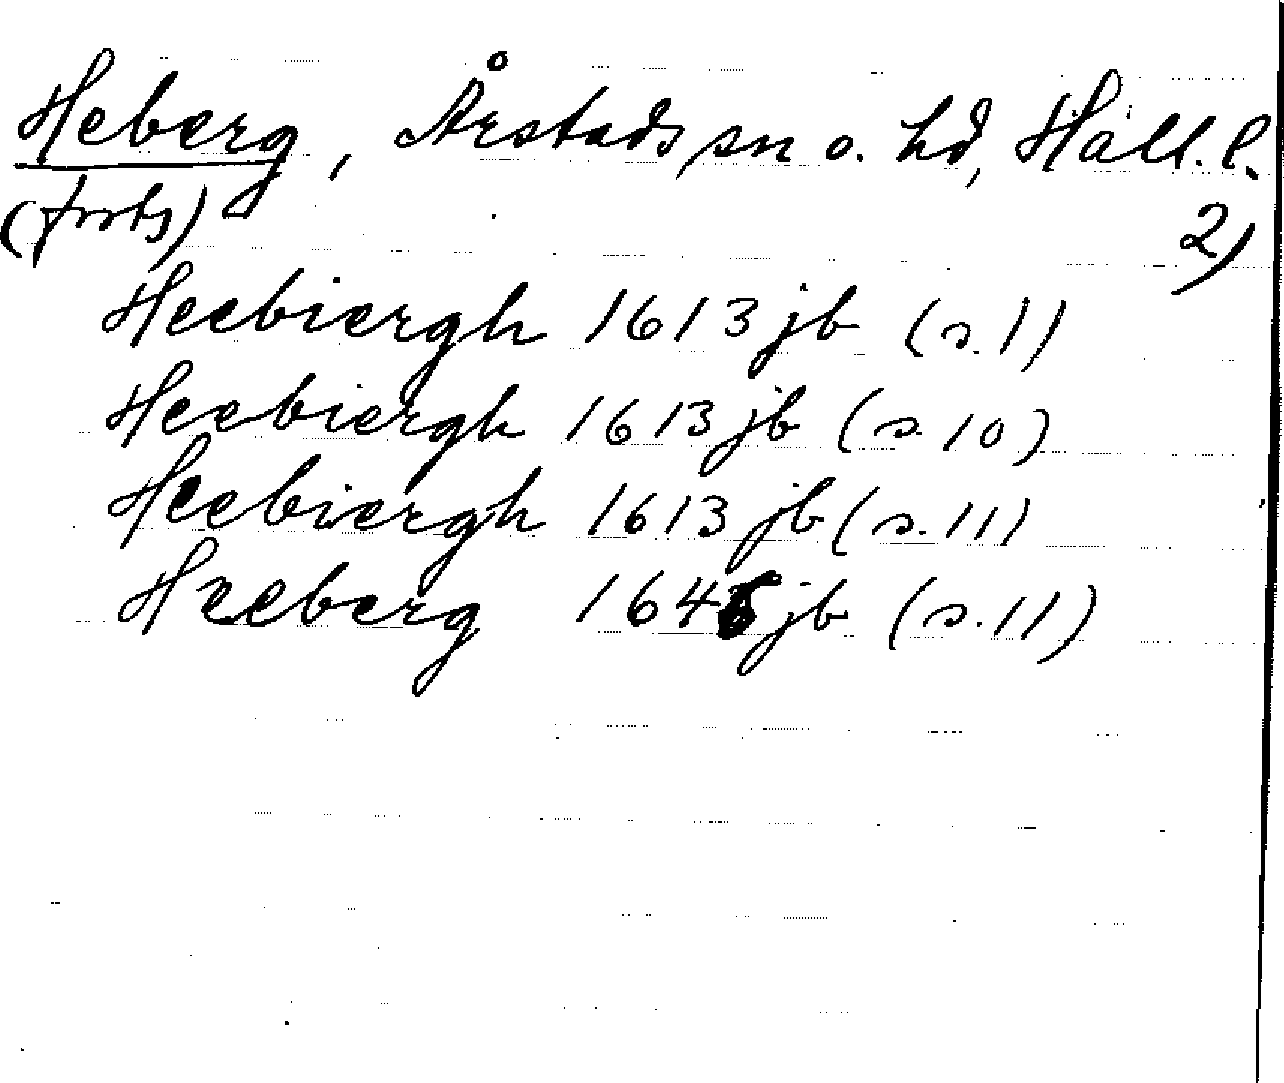 Heberg, Årstads sn o. hd, Hall. l.
(forts) 2)
Heebiergh 1613 jb (s. 1)
Heebiergh 1613 jb (s. 10)
Heebiergh 1613 jb (s. 11)
Heeberg 1646 jb (s. 11)